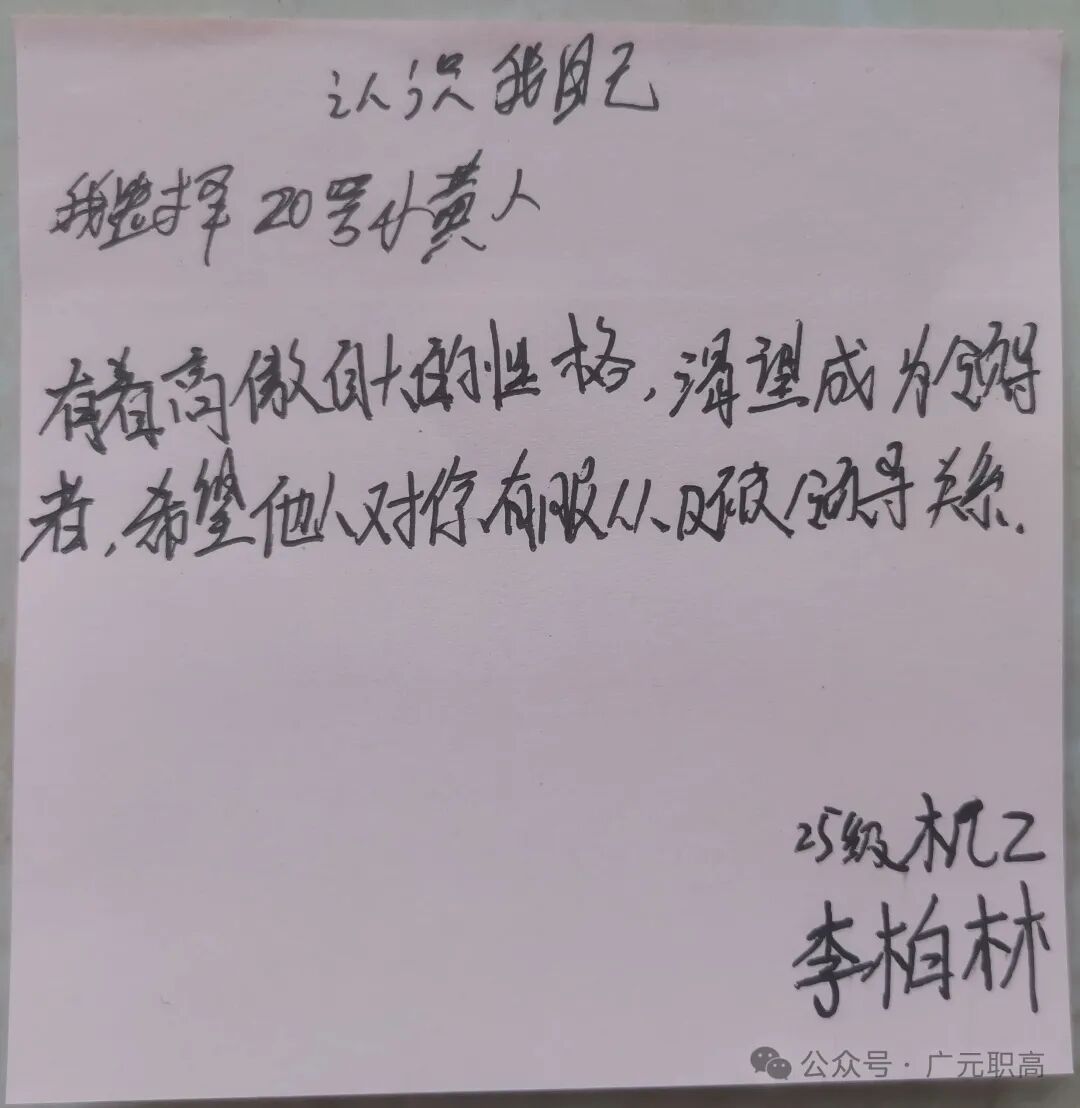 认识我自己
我选择20号小黄人
有着高傲自大的性格,渴望成为领导
者,希望他人对你有服从跟被领导关系.
25级机乙
李柏林
公众号·广元职高